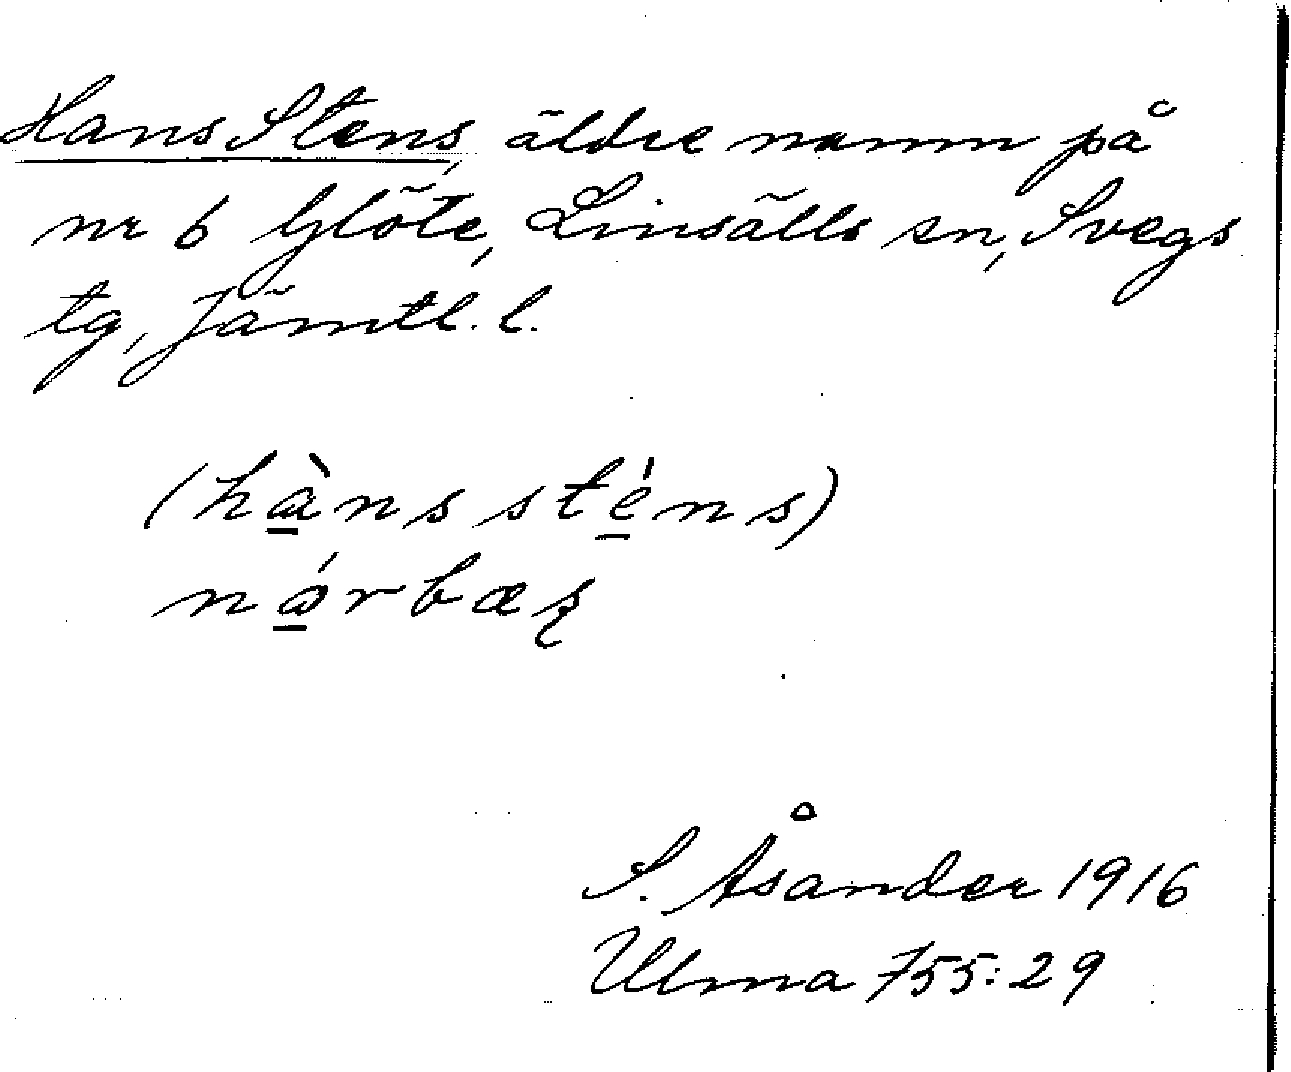 Hans Stens, äldre namn på
nr 6 Glöte, Linsälls sn, Svegs
tg, Jämtl. l.
(hàns sténs)
S. Åsander 1916
Ulma 755:29